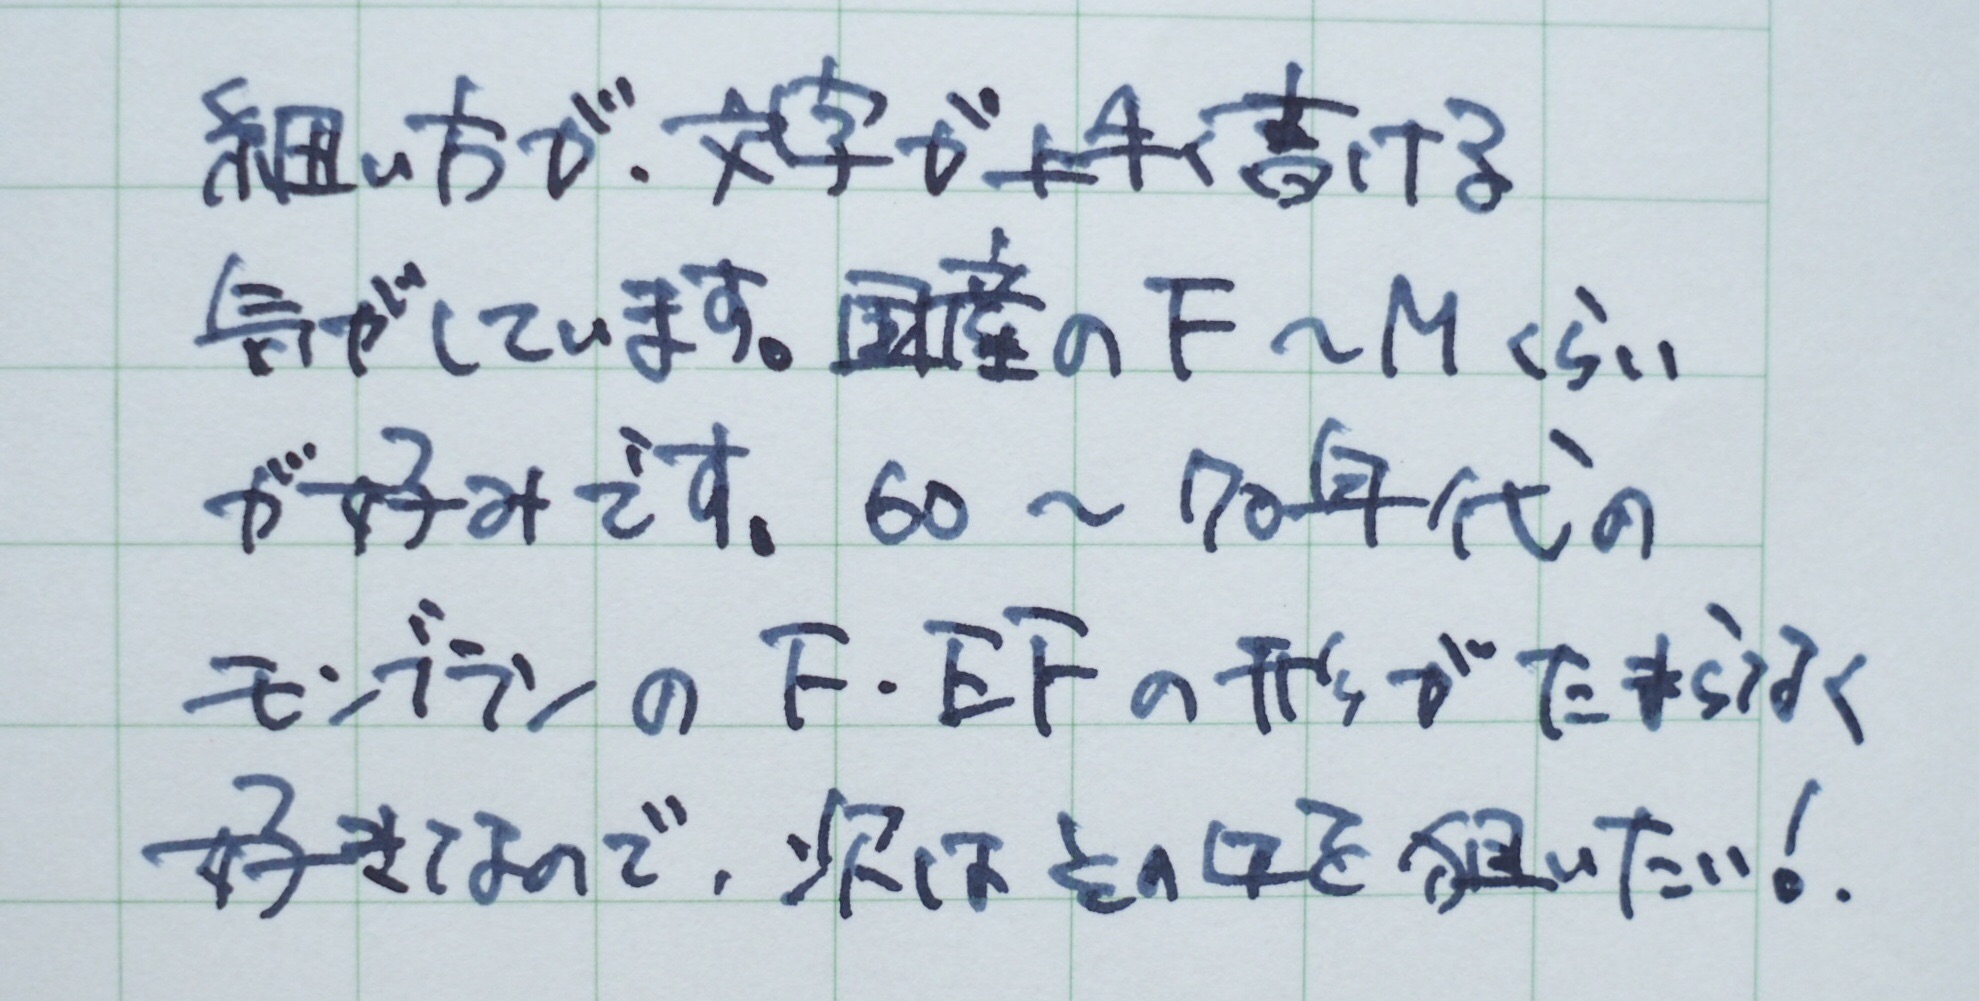 細い方が、文字が上手く書ける
気がしています。国産のF～Mくらい
が好みです。60～70年代の
モンブランのF・EFの形がたまらなく
好きなので、次はその口を狙いたい!